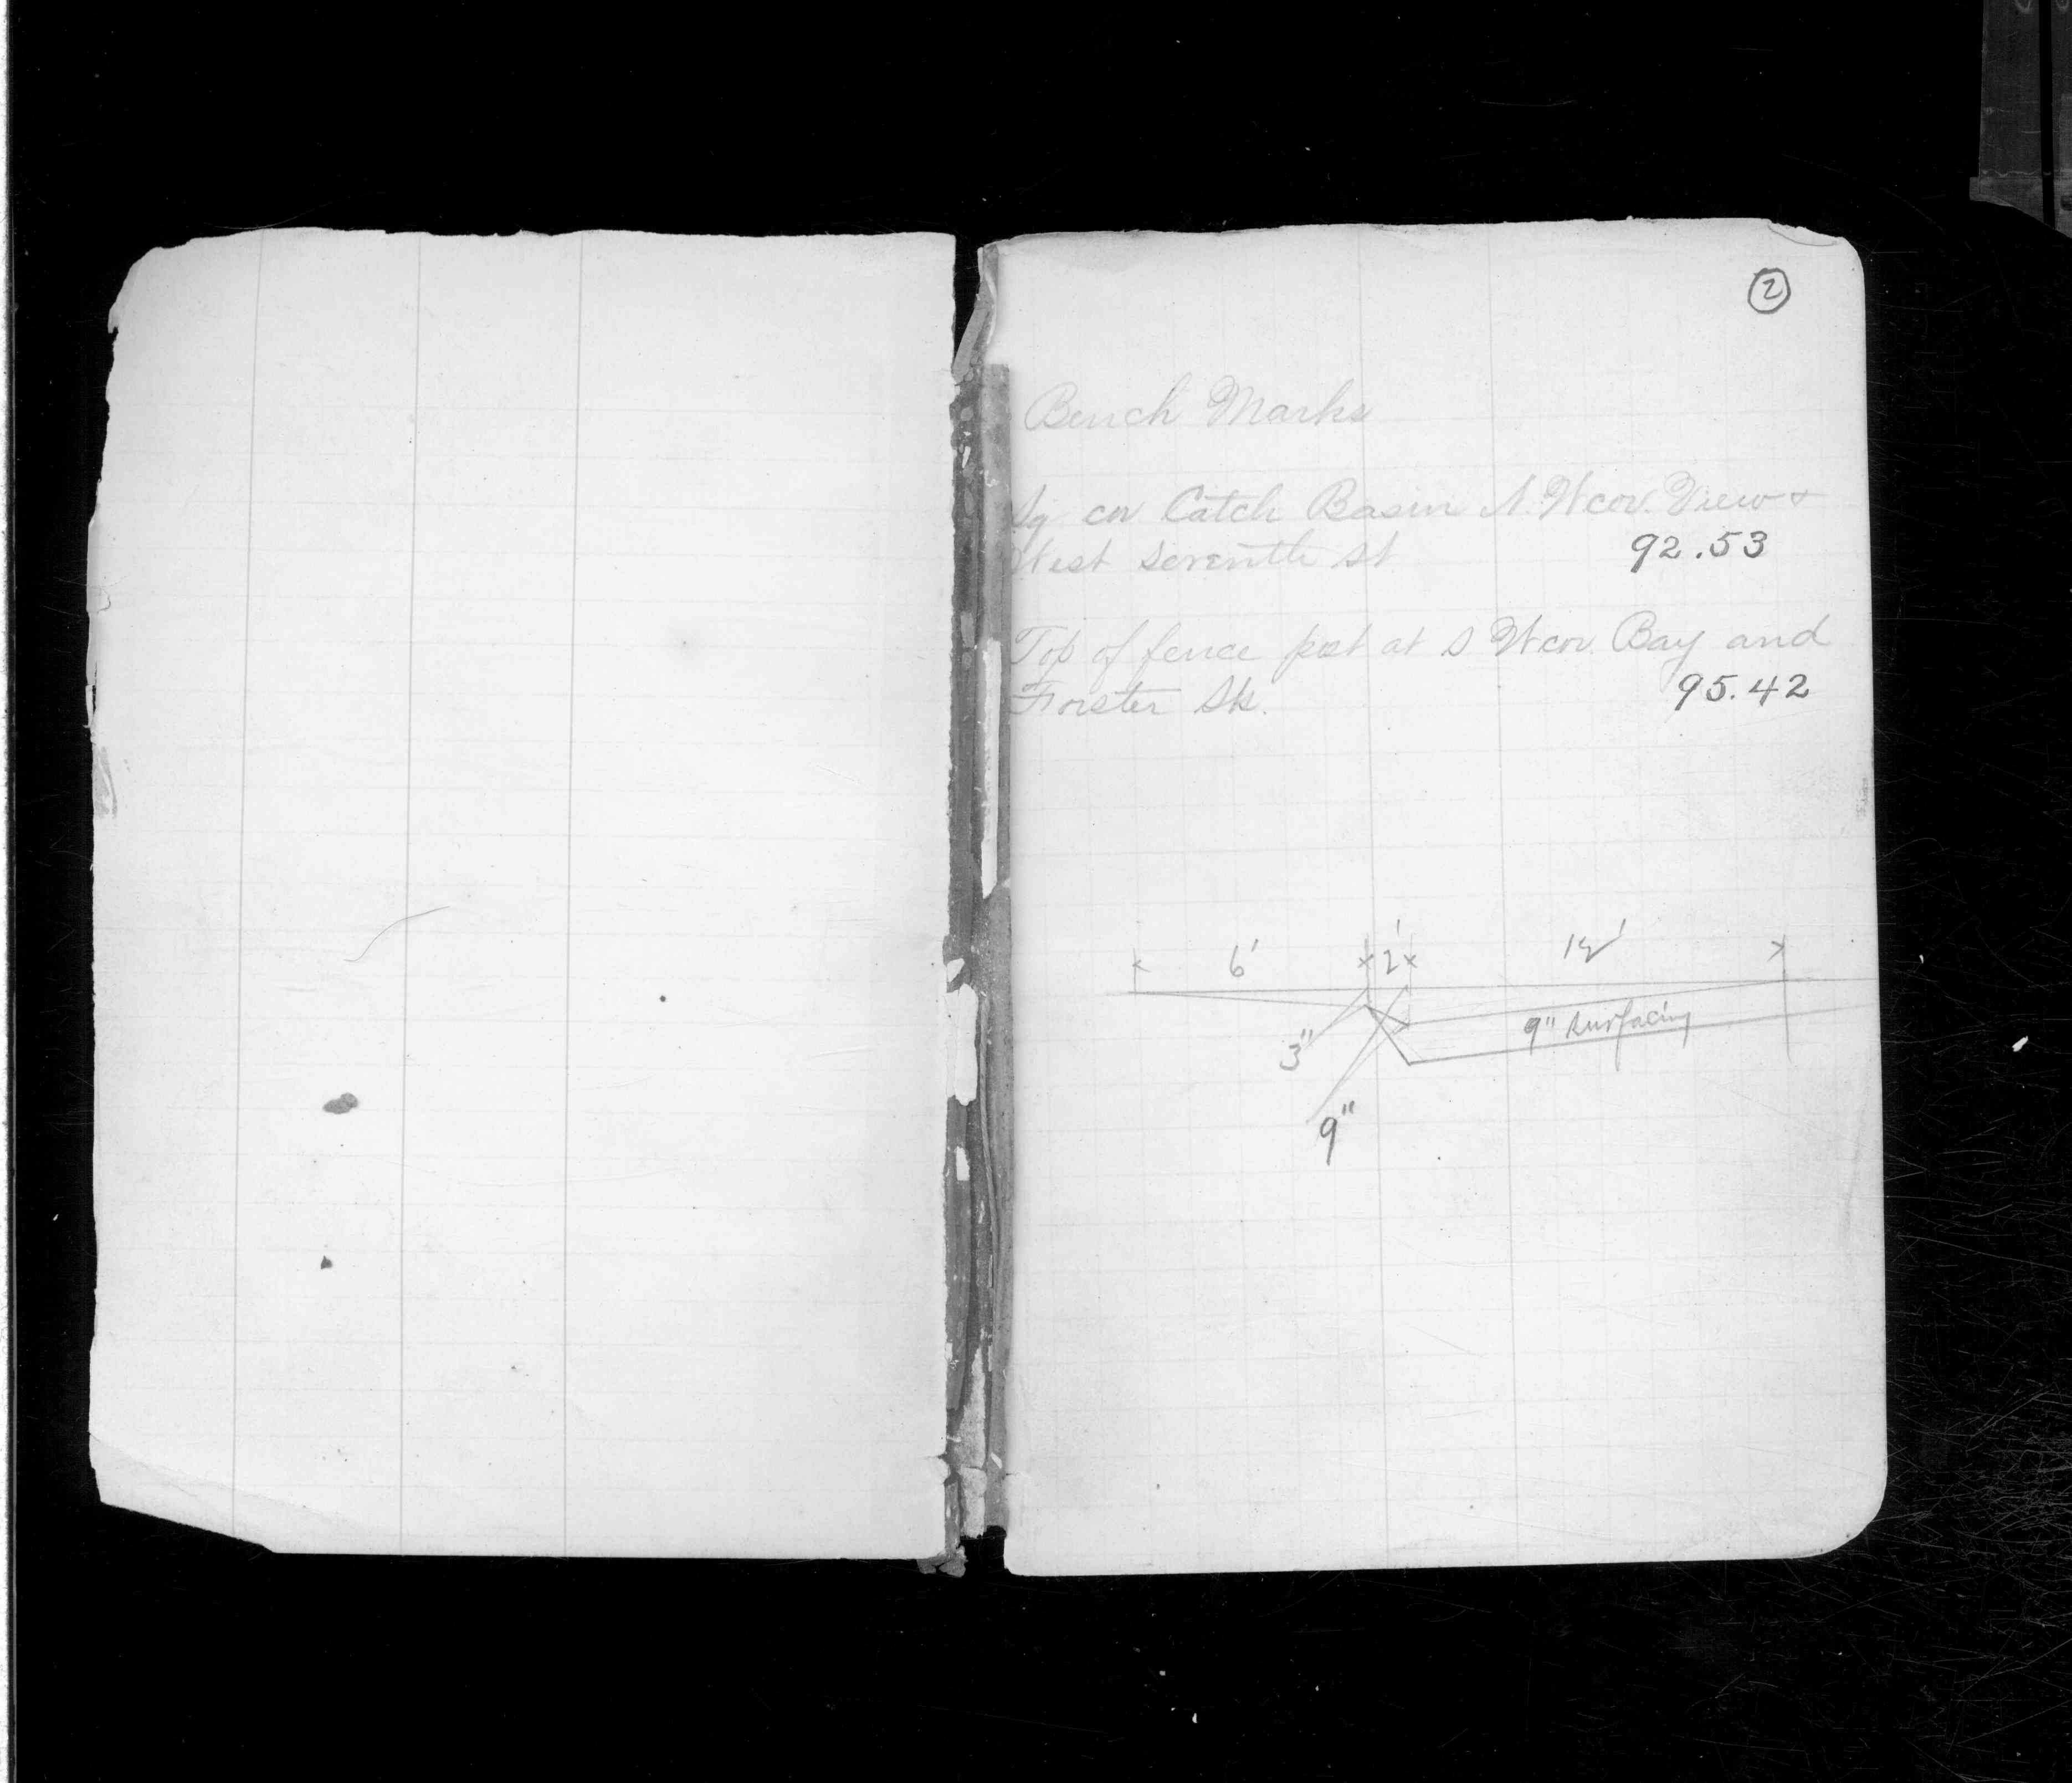 2
Bench Marks
Sq cor Catch Basin N. W cor. View &
West Seventh St 92.53
Top of fence post at S W cor Bay and
Forster Sts. 95.42
6' 2' 12'
9" Surfacing
3"
9"